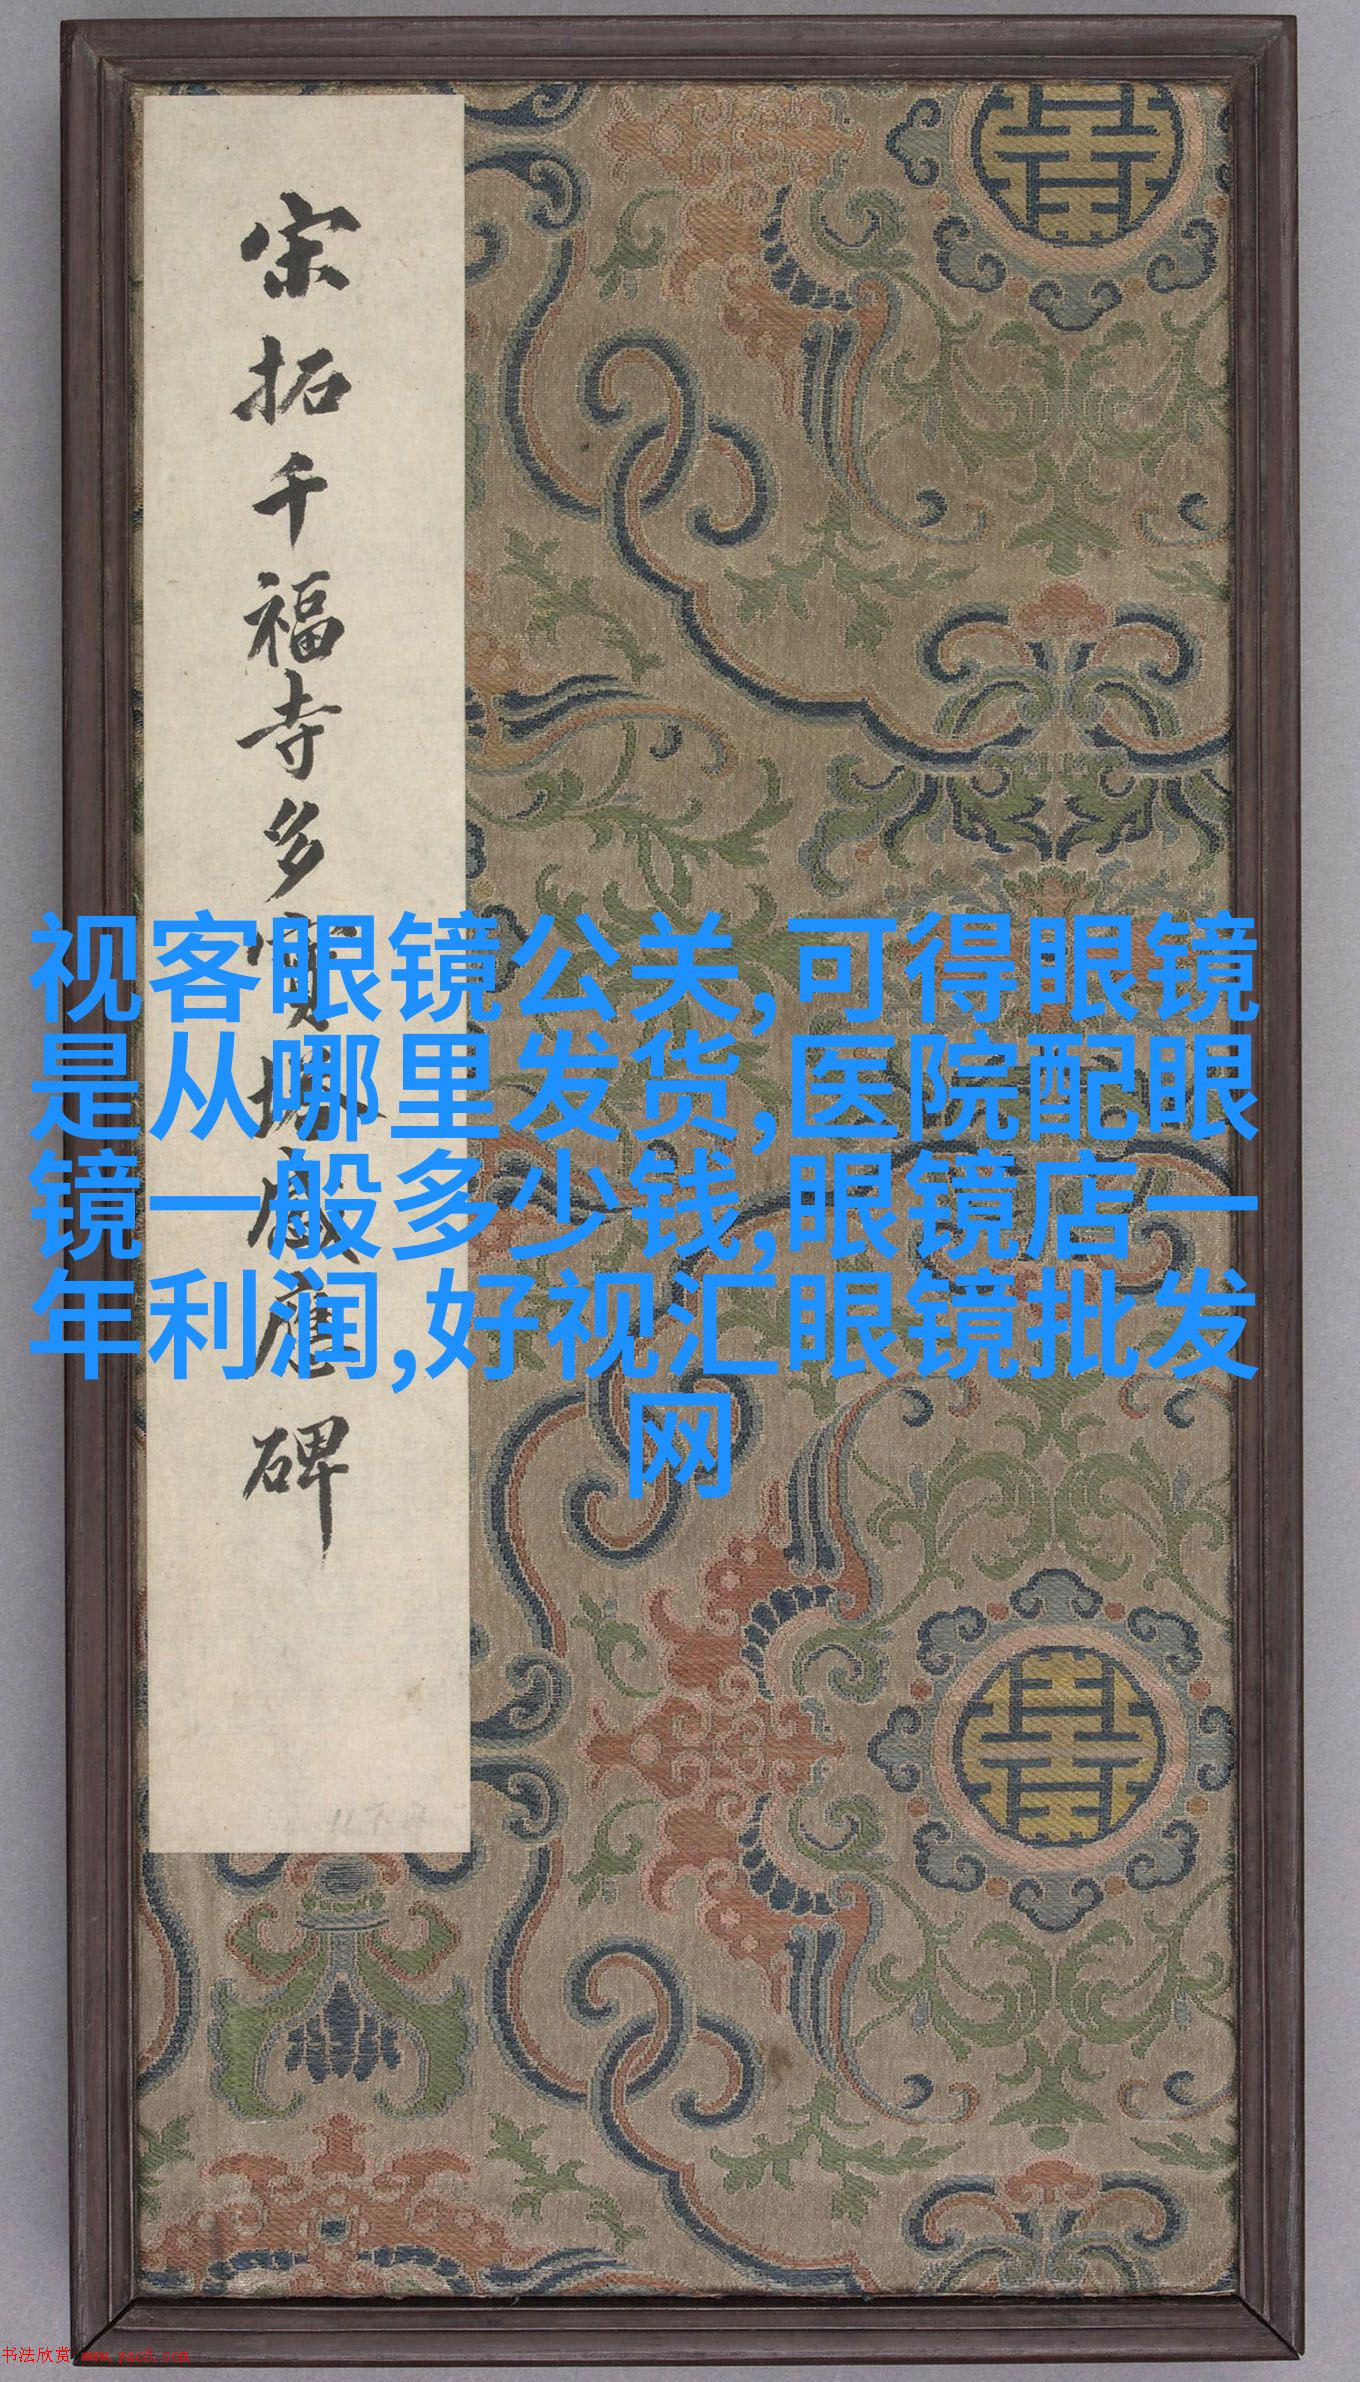 宋拓千福寺多寶塔感應碑
视客眼镜公关,可得眼镜
是从哪里发货,医院配眼
镜一般多少钱,眼镜店一
年利润,好视汇眼镜批发
网
书法欣赏 www.yac8.com